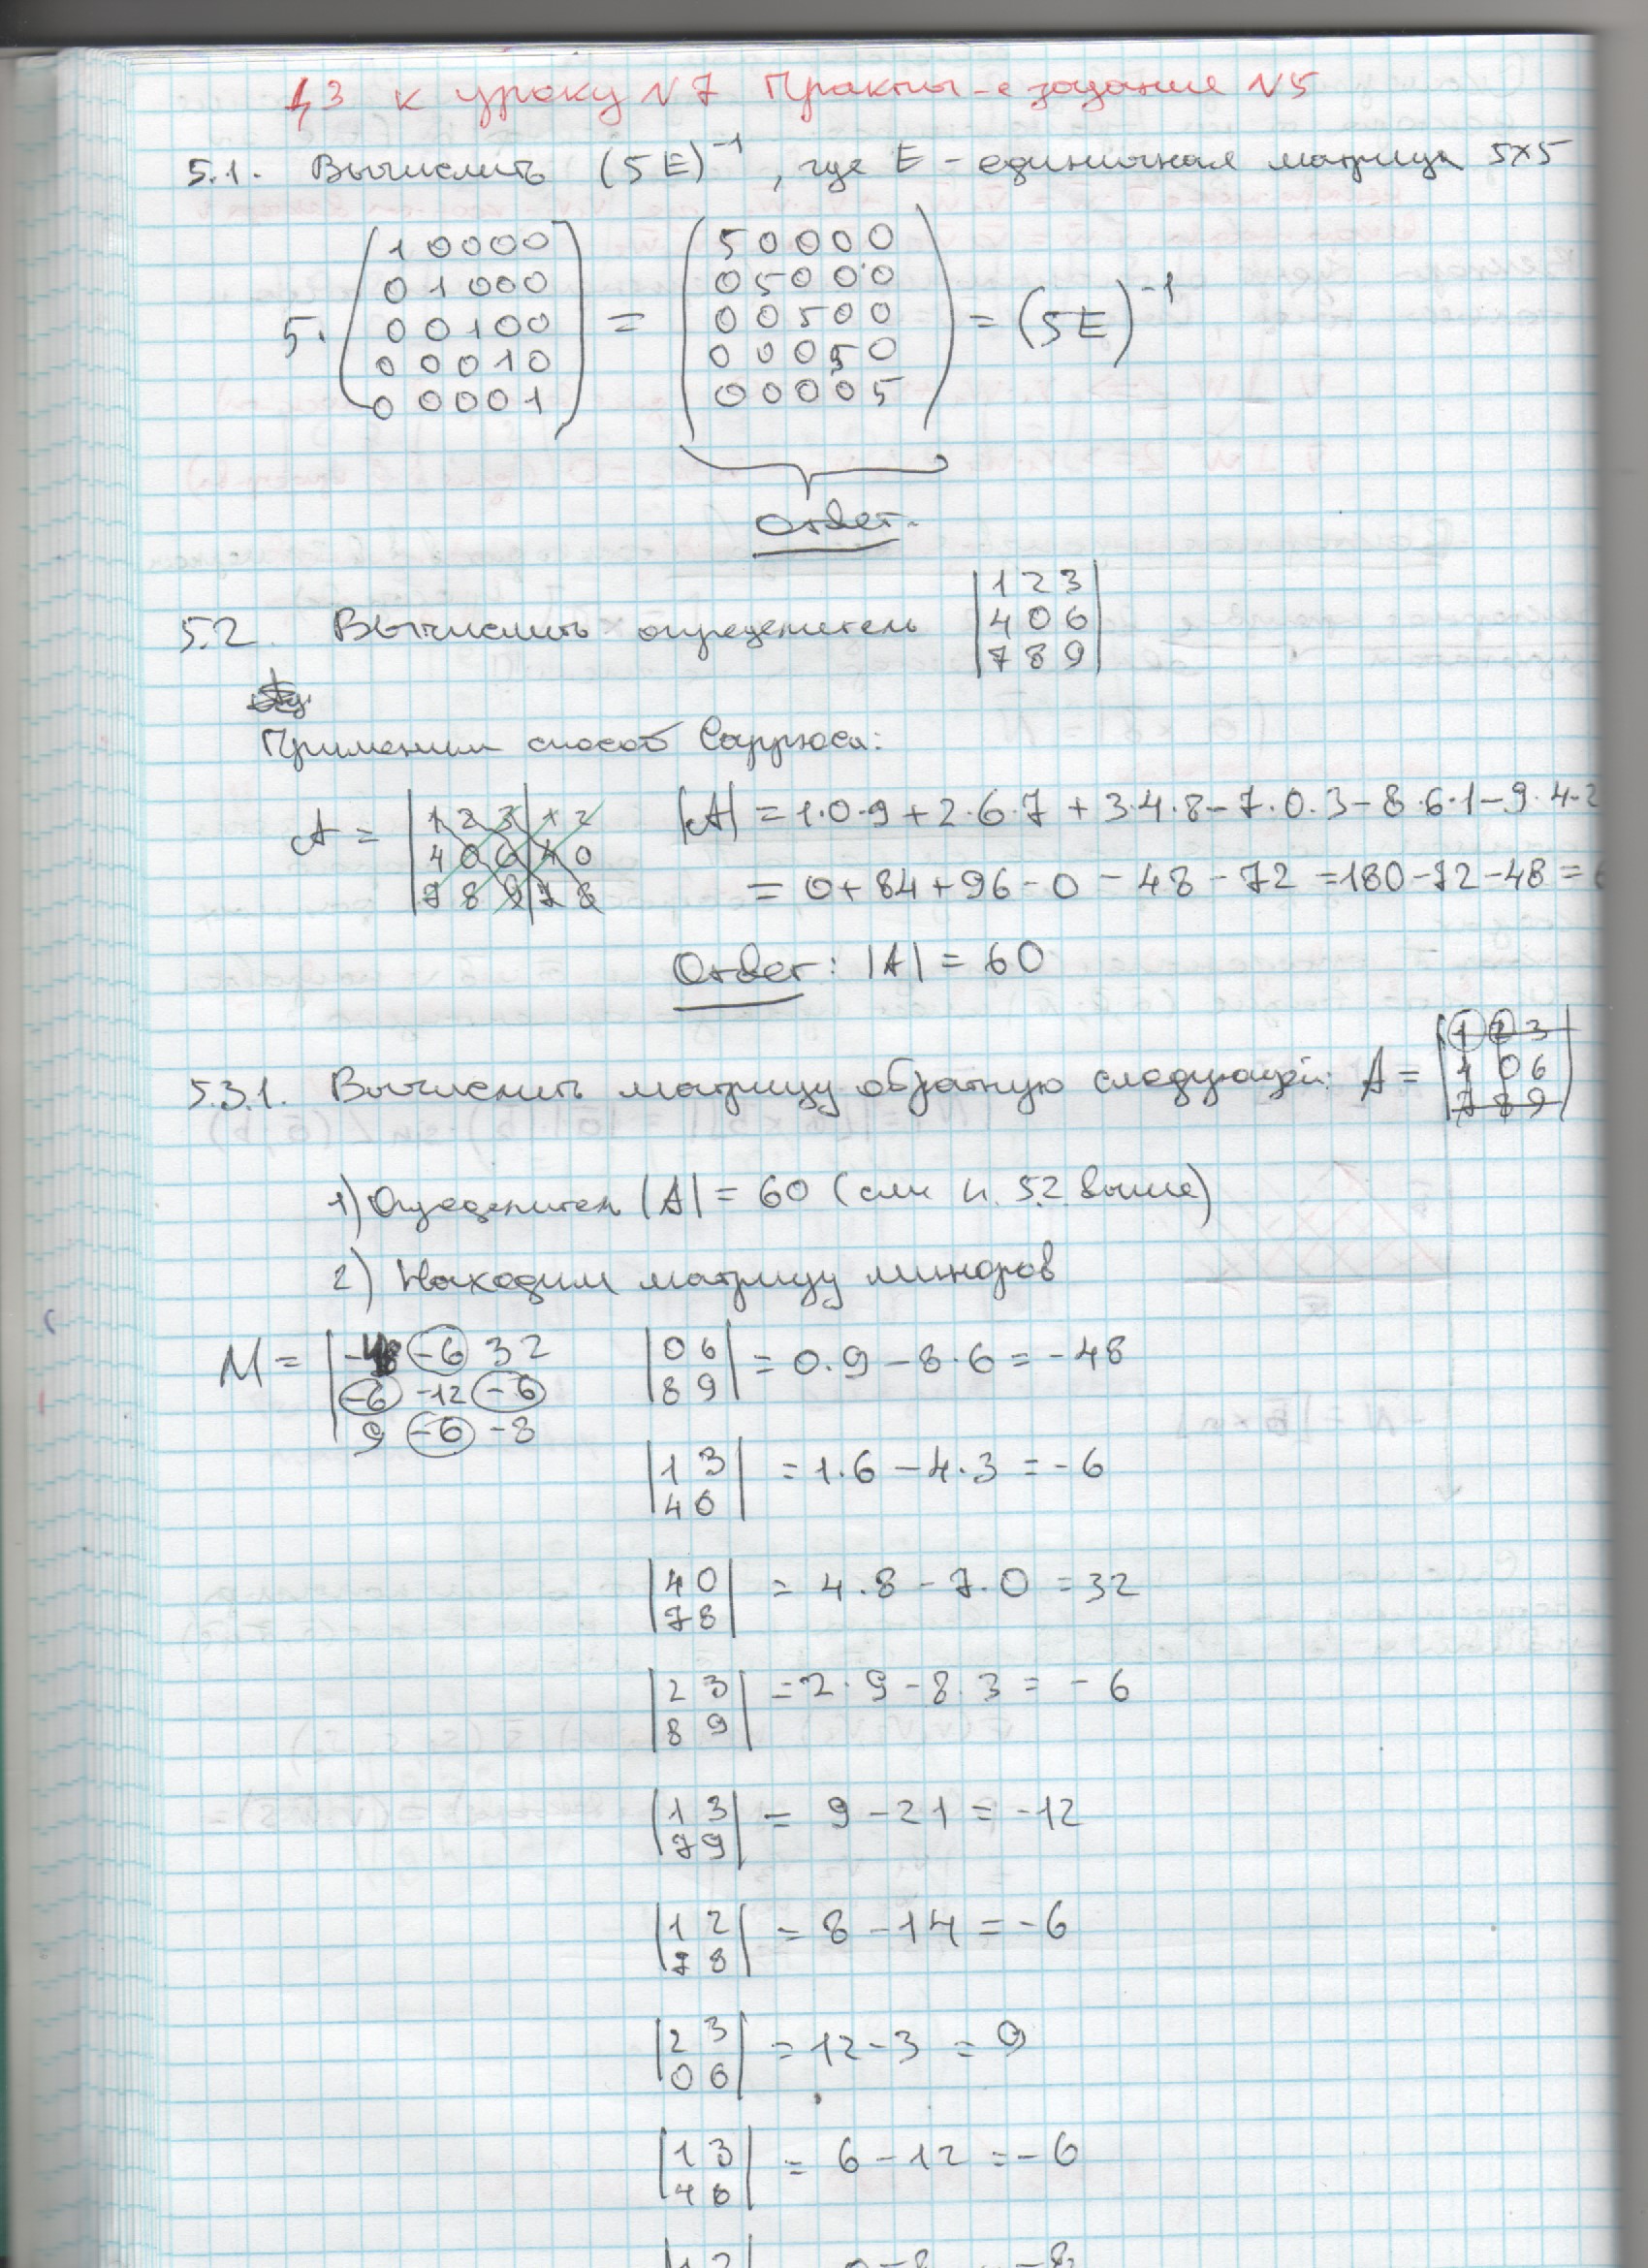 ДЗ к уроку N7 Практич-е задание N5
5.1. Вычислить (5E)⁻¹, где E - единичная матрица 5×5
5· (1 0 0 0 0 = (5 0 0 0 0 = (5E)⁻¹
0 1 0 0 0 0 5 0 0 0
0 0 1 0 0 0 0 5 0 0
0 0 0 1 0 0 0 0 5 0
0 0 0 0 1) 0 0 0 0 5)
Ответ.
5.2. Вычислить определитель |1 2 3|
|4 0 6|
|7 8 9|
Применим способ Саррюса:
A = |1 2 3|1 2 |A| = 1·0·9+2·6·7+3·4·8-7·0·3-8·6·1-9·4·2
|4 0 6|4 0
|7 8 9|7 8 = 0+84+96-0-48-72=180-72-48=6
Ответ: |A| = 60
5.3.1. Вычислить матрицу обратную следующей: A = |1 2 3|
|4 0 6|
|7 8 9|
1) Определитель |A| = 60 (см п. 5.2 выше)
2) Находим матрицу миноров
M = |-48 -6 32 |0 6| = 0·9-8·6=-48
|-6 -12 -6 |8 9|
|9 -6 -8
|1 3| = 1·6-4·3=-6
|4 6|
|4 0| = 4·8-7·0=32
|7 8|
|2 3| =2·9-8·3=-6
|8 9|
|1 3| = 9-21=-12
|7 9|
|1 2| = 8-14=-6
|7 8|
|2 3| =12-3=9
|0 6|
|1 3| = 6-12=-6
|4 6|
|1 2| = 0-8=-8